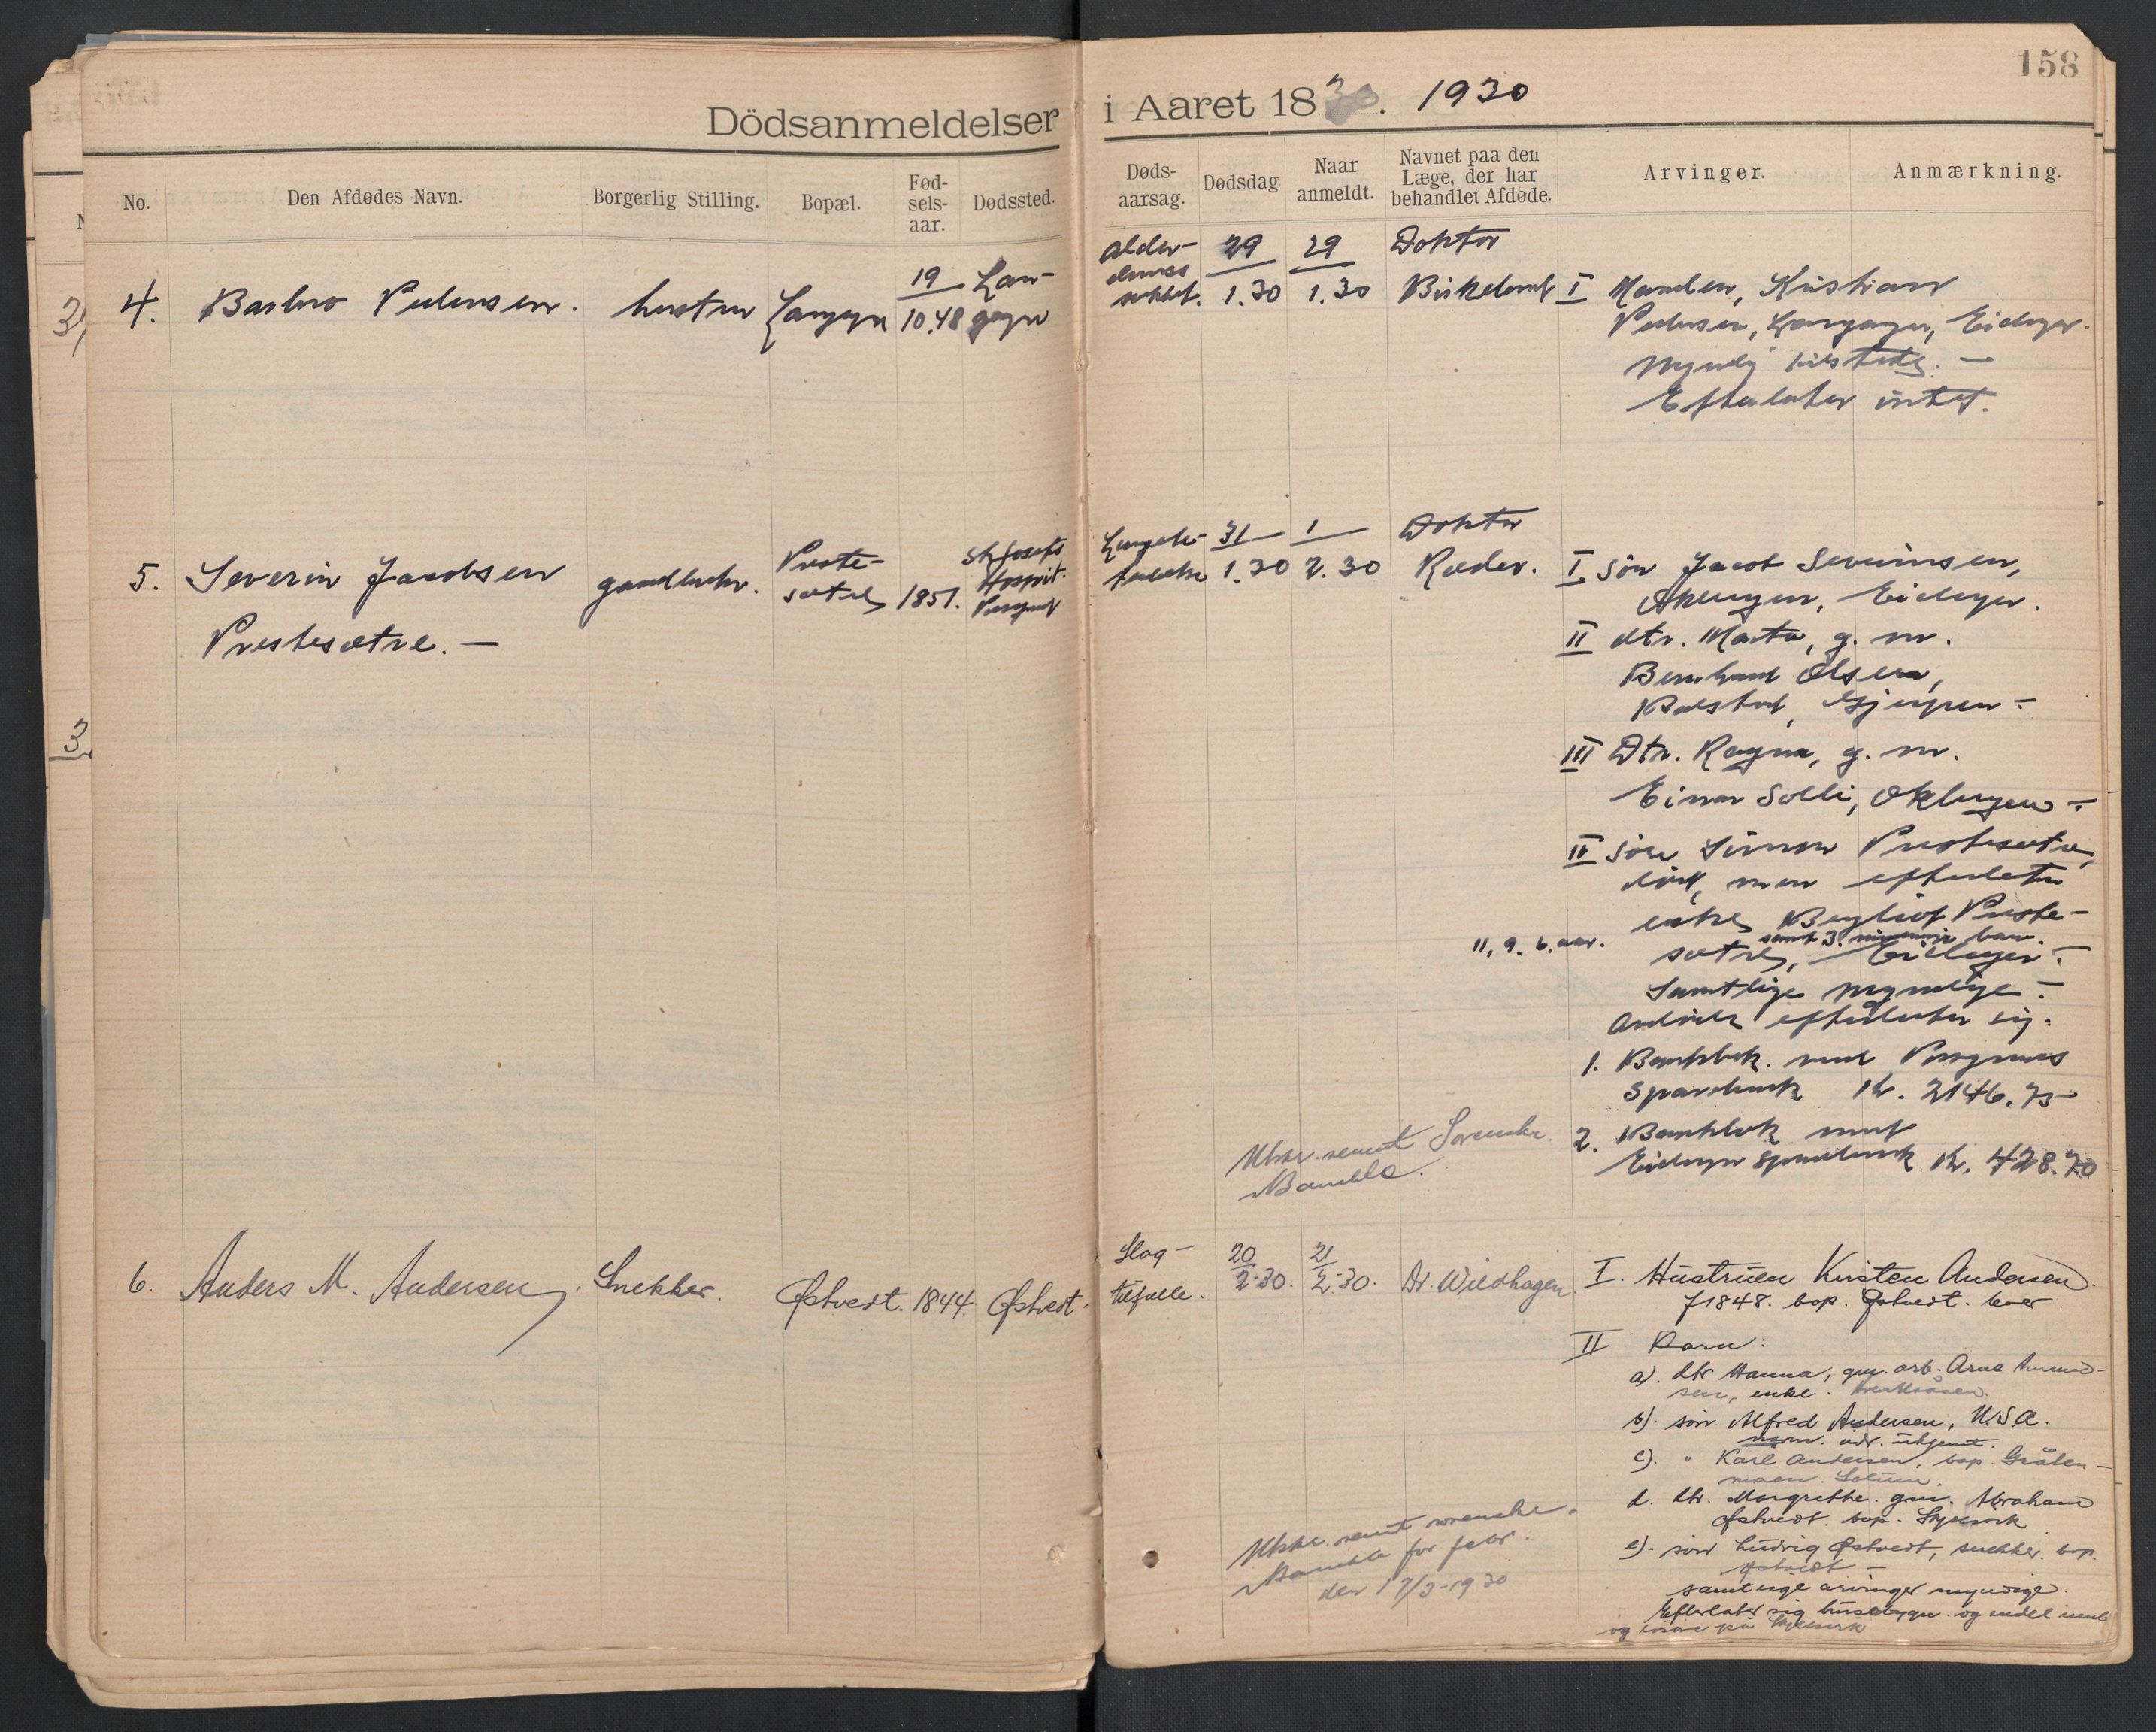 158
Dödsanmeldelser i Aaret 1830. 1930
No.
Den Afdødes Navn.
Borgerlig Stilling.
Bopæl.
Fød-
sels-
aar.
Dødssted.
Døds-
aarsag.
Dødsdag
Naar
anmeldt.
Navnet paa den
Læge, der har
behandlet Afdøde.
Arvinger.
Anmærkning.
4. Barbro Pedersen. hustru Langgn 19/10.48
Alder-
doms
29/1.30 29/1.30 Doktor
I Manden, Kristian
Pedersen, Eidanger.
Myndig
Efterlater intet.
5. Severin Jacobsen
Prestesætre. —
gaardbruker.
Preste-
sætre 1851.
St. Josefs
Hospit.
Porsgrund
Lunge-
31/1.30 1/2.30 Doktor
Ræder.
I Sön Jacob Severinsen,
Oklungen, Eidanger.
II dtr. Marta, g. m.
Bernhard Olsen,
Gjerpen —
III Dtr. Ragna, g. m.
Einar Solli, Oklungen —
II Sön Simon Prestesætre,
död, men efterlater
enke Bergliot Preste-
samt 3. barn.
11, 9. 6. aar.
sætre, Eidanger —
Samtlige myndige —
Avdöde efterlater sig.
1. Bankbok. med Porsgrunds
Sparebank Kr. 2146.75
2. Bankbok med
Eidanger Sparebank Kr. 428.70
Utskr. sendt Sorenskr.
Bamble.
6. Anders M. Andersen. Snekker. Østvedt. 1844. Østvedt.
Slag-
tilfælle.
20/2-30. 21/2-30. Dr. Wildhagen.
I. Hustruen Kirsten Andersen.
f 1848. bop. Østvedt. lever.
II Barn:
a). dtr. Hanna, gm. arb. Arne Amund-
sen, enke.
b). sön Alfred Andersen, U.S.A.
adr. ukjent.
c). " Karl Andersen, bop. Gråten-
moen. Solum.
d. dtr. Margrethe. gm. Abraham
Østvedt. bop.
e). sön Ludvig Østvedt, snekker. bop.
Østvedt —
samtlige arvinger myndige.
Efterlater sig og endel
og
Utskr. sendt sorenskr.
Bamble for febr.
den 17/3-1930